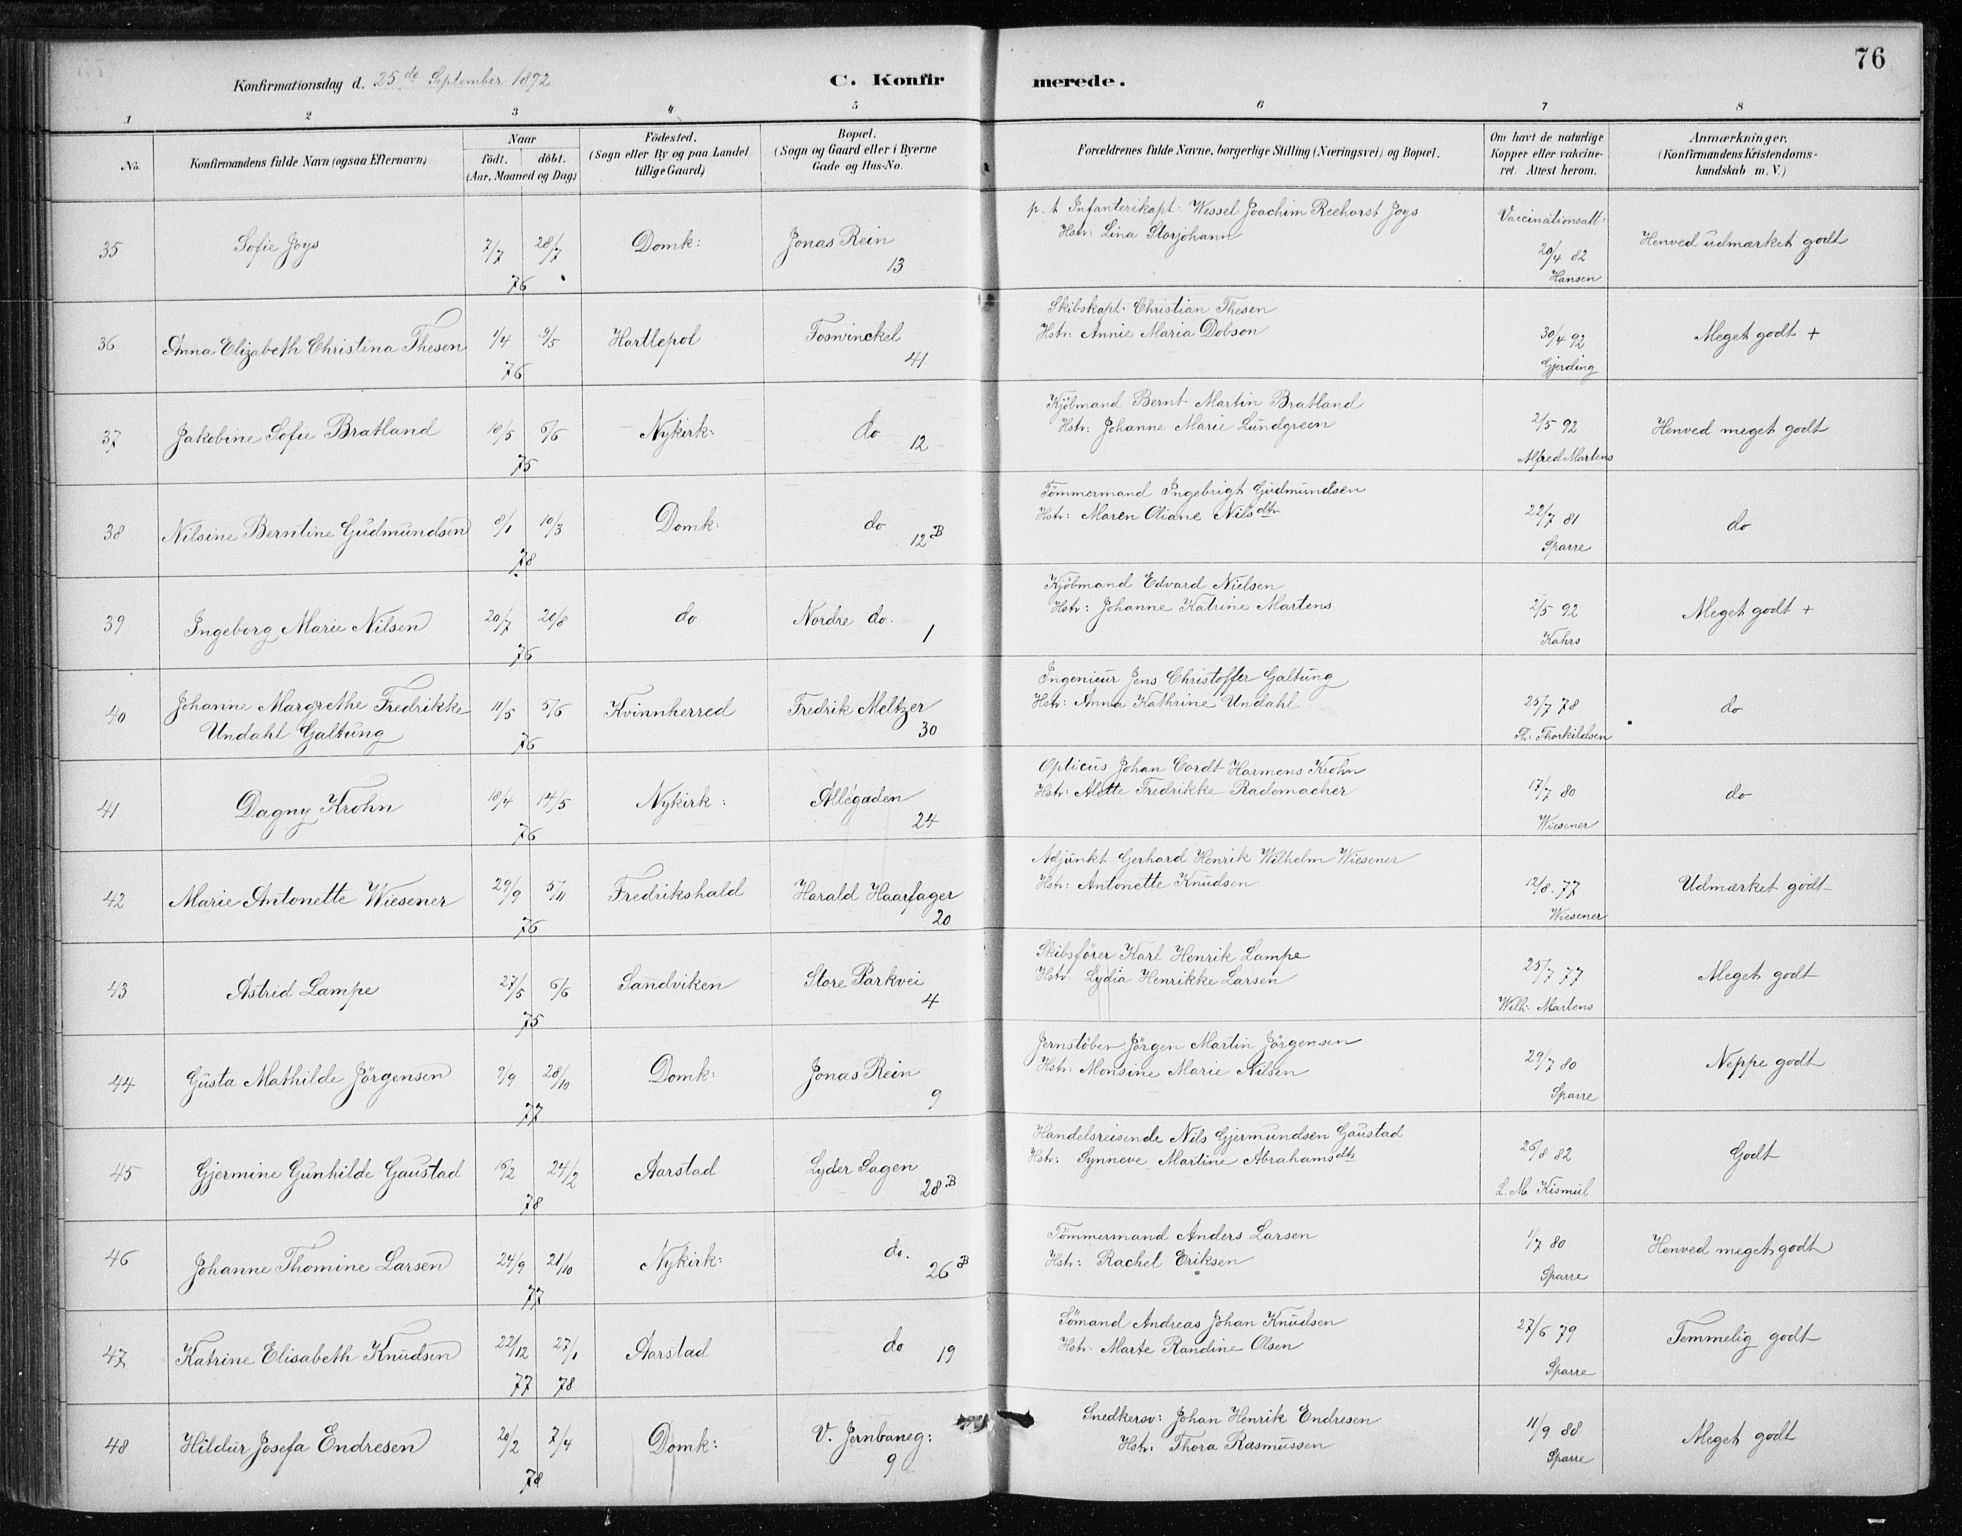 76
Konfirmationsdag d. 25de September 1892
C. Konfirmerede.
1 2 3 4 5 6 7 8
No.
Konfirmandens fulde Navn (ogsaa Efternavn)
Naar
födt. döbt.
(Aar, Maaned og Dag)
Födested.
(Sogn eller By og paa Landet
tillige Gaard)
Bopæl.
(Sogn og Gaard eller i Byerne
Gade og Hus-No.
Forældrenes fulde Navne, borgerlige Stilling (Næringsvei) og Bopæl.
Om havt de naturlige
Kopper eller vakcine-
ret. Attest herom.
Anmærkninger,
(Konfirmandens Kristendoms-
kundskab m. V.)
35 Sofie Joys 7/7 28/7 76 Domk: Jonas Rein 13
p. t Infanterikapt: Wessel Joachim Reehorst Joys
Hstr: Lina Storjohann
Vaccinationsatt.
20/4 82
Hansen
Henved udmærket godt
36 Anna Elizabeth Christina Thesen 1/4 9/5 76 Hartlepol Tosvinckel 41
Skibskapt. Christian Thesen
Hstr. Annie Maria Dobson
30/4 92
Gjerding
Meget godt +
37 Jakobine Sofie Bratland 18/5 6/6 75 Nykirk: do 12
Kjöbmand Bernt Martin Bratland
Hstr: Johanne Marie Lundgreen
2/5 92
Alfred Martens
Henved meget godt
38 Nilsine Berntine Gudmundsen 8/1 10/3 78 Domk: do 12B
Tömmermand Ingebrigt Gudmundsen
Hstr: Maren Oliane Nilsdtr
22/7 81
Sparre
do
39 Ingeborg Marie Nilsen 20/7 20/8 76 do Nordre do. 1
Kjöbmand Edvard Nielsen
Hstr: Johanne Katrine Martens
2/5 92
Kahrs
Meget godt +
40 Johanne Margrethe Fredrikke
Undahl Galtung 11/5 5/6 76 Kvinnherred Fredrik Meltzer 30
Ingenieur Jens Christoffer Galtung
Hstr: Anna Kathrine Undahl
25/7 78
Th: Thorkildsen
do
41 Dagny Krohn 18/4 14/5 76 Nykirk: Allégaden 24
Opticus Johan Cordt Harmens Krohn
Hstr: Alette Fredrikke Rademacher
17/7 80
Wiesener
do
42 Marie Antonette Wiesener 29/9 5/11 76 Fredrikshald Harald Haarfager 20
Adjunkt Gerhard Henrik Wilhelm Wiesener
Hstr: Antonette Knudsen
12/8 77
Wiesener
Udmærket godt
43 Astrid Lampe 27/5 6/6 75 Sandviken Store Parkvei 4
Skibsförer Karl Henrik Lampe
Hstr. Lydia Henrikke Larsen
25/7 77
Wilh: Martens
Meget godt
44 Gusta Mathilde Jörgensen 9/9 28/10 77 Domk: Jonas Rein 9
Jernstöber Jörgen Martin Jörgensen
Hstr: Monsine Marie Nilsen
29/7 80
Sparre
Neppe godt
45 Gjermine Gunhilde Gaustad 16/2 24/2 78 Aarstad Lyder Sagen 28B
Handelsreisende Nils Gjermundsen Gaustad
Hstr: Synneve Martine Abrahamsdtr
26/8 82
L. M. Kismul
Godt
46 Johanne Thomine Larsen 24/9 21/10 77 Nykirk: do. 26B
Tömmermand Anders Larsen
Hstr: Rachel Eriksen
1/7 80
Sparre
Henved meget godt
47 Katrine Elisabeth Knudsen 22/12 77 27/1 78 Aarstad do 19
Sömand Andreas Johan Knudsen
Hstr. Marte Randine Olsen
27/6 79
Sparre
Temmelig godt
48 Hildur Josefa Endresen 20/2 7/4 78 Domk: V. Jernbaneg: 9
Snedkersv: Johan Henrik Endresen
Hstr: Thora Rasmussen
11/9 88
Sparre
Meget godt